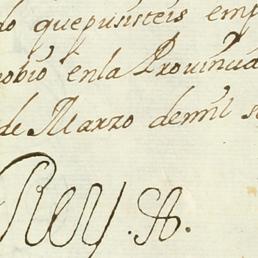 do quepusisteis emp
obio enla Provincia
de Marzo demil s
Rey. A.